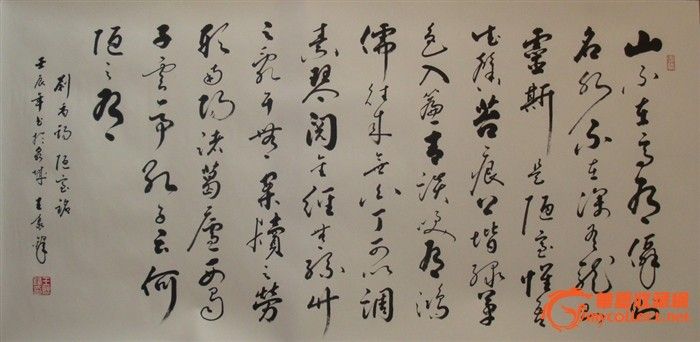 山不在高有僊則
名水不在深有龍則
靈斯是陋室惟吾
德馨苔痕上堦緑草
色入簾青談笑有鴻
儒往来無白丁可以調
素琴閱金經無絲竹
之亂耳無案牘之勞
形南陽諸葛廬西蜀
子雲亭孔子云何
陋之有
劉禹錫陋室銘
壬辰年书於泉城王
華夏收藏網
mycollect.net